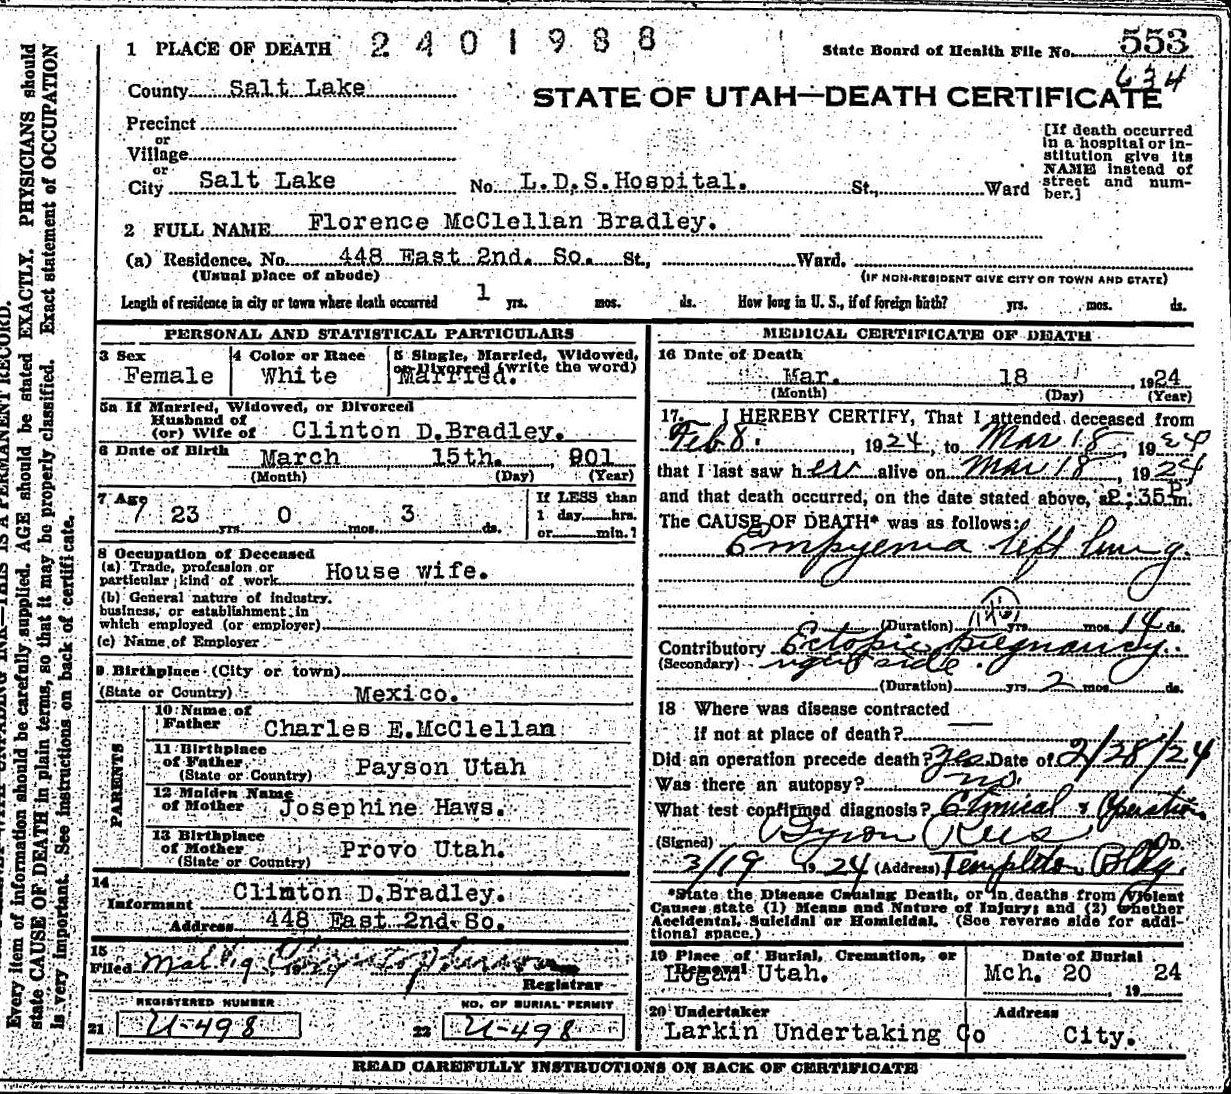 1 PLACE OF DEATH 2401988
State Board of Health File No. 553
634
County Salt Lake
STATE OF UTAH—DEATH CERTIFICATE
Precinct
or
Village
or
City Salt Lake No. L.D.S.Hospital. St., Ward
[If death occurred
in a hospital or in-
stitution give its
NAME instead of
street and num-
ber.]
2 FULL NAME Florence McClellan Bradley.
(a) Residence. No. 448 East 2nd. So. St., Ward.
(Usual place of abode) (IF NON-RESIDENT GIVE CITY OR TOWN AND STATE)
Length of residence in city or town where death occurred 1 yrs. mos. ds. How long in U. S., if of foreign birth? yrs. mos. ds.
PERSONAL AND STATISTICAL PARTICULARS
3 Sex
Female
4 Color or Race
White
5 Single, Married, Widowed,
or Divorced (write the word)
Married.
5a If Married, Widowed, or Divorced
Husband of
(or) Wife of Clinton D.Bradley.
6 Date of Birth March 15th. 901
(Month) (Day) (Year)
7 Age
23 yrs. 0 mos. 3 ds.
If LESS than
1 day hrs.
or min.?
8 Occupation of Deceased
(a) Trade, profession or
particular kind of work House wife.
(b) General nature of industry,
business, or establishment in
which employed (or employer)
(c) Name of Employer
9 Birthplace (City or town)
(State or Country) Mexico.
PARENTS
10 Name of
Father Charles E.McClellan
11 Birthplace
of Father
(State or Country) Payson Utah
12 Maiden Name
of Mother Josephine Haws.
13 Birthplace
of Mother
(State or Country) Provo Utah.
14
Informant Clinton D.Bradley.
Address 448 East 2nd So.
15
Filed 19 1924
Registrar
REGISTERED NUMBER
21 U-498
NO. OF BURIAL PERMIT
22 U-498
MEDICAL CERTIFICATE OF DEATH
16 Date of Death
Mar. 18 , 1924
(Month) (Day) (Year)
17 I HEREBY CERTIFY, That I attended deceased from
Feb 8. , 1924, to Mar 18 , 1924
that I last saw her alive on Mar 18 , 1924
and that death occurred, on the date stated above, at 2;35 P m.
The CAUSE OF DEATH* was as follows:
Empyema left lung.
146
(Duration) yrs. mos. 14 ds.
Contributory Ectopic pregnancy.
(Secondary) right side.
(Duration) yrs. 2 mos. ds.
18 Where was disease contracted
if not at place of death?
Did an operation precede death? Yes. Date of 2/28/24
Was there an autopsy? no.
What test confirmed diagnosis? Clinical & Operation
(Signed) Byron Rees M.D.
3/19 1924 (Address) Templeton Bldg.
*State the Disease Causing Death, or in deaths from Violent
Causes state (1) Means and Nature of Injury; and (2) whether
Accidental, Suicidal or Homicidal. (See reverse side for addi-
tional space.)
19 Place of Burial, Cremation, or
Removal
Logan Utah.
Date of Burial
Mch. 20 , 1924
20 Undertaker
Larkin Undertaking Co
Address
City.
READ CAREFULLY INSTRUCTIONS ON BACK OF CERTIFICATE
Every item of information should be carefully supplied. AGE should be stated EXACTLY. PHYSICIANS should
state CAUSE OF DEATH in plain terms, so that it may be properly classified. Exact statement of OCCUPATION
is very important. See instructions on back of certificate.
THIS IS A PERMANENT RECORD.